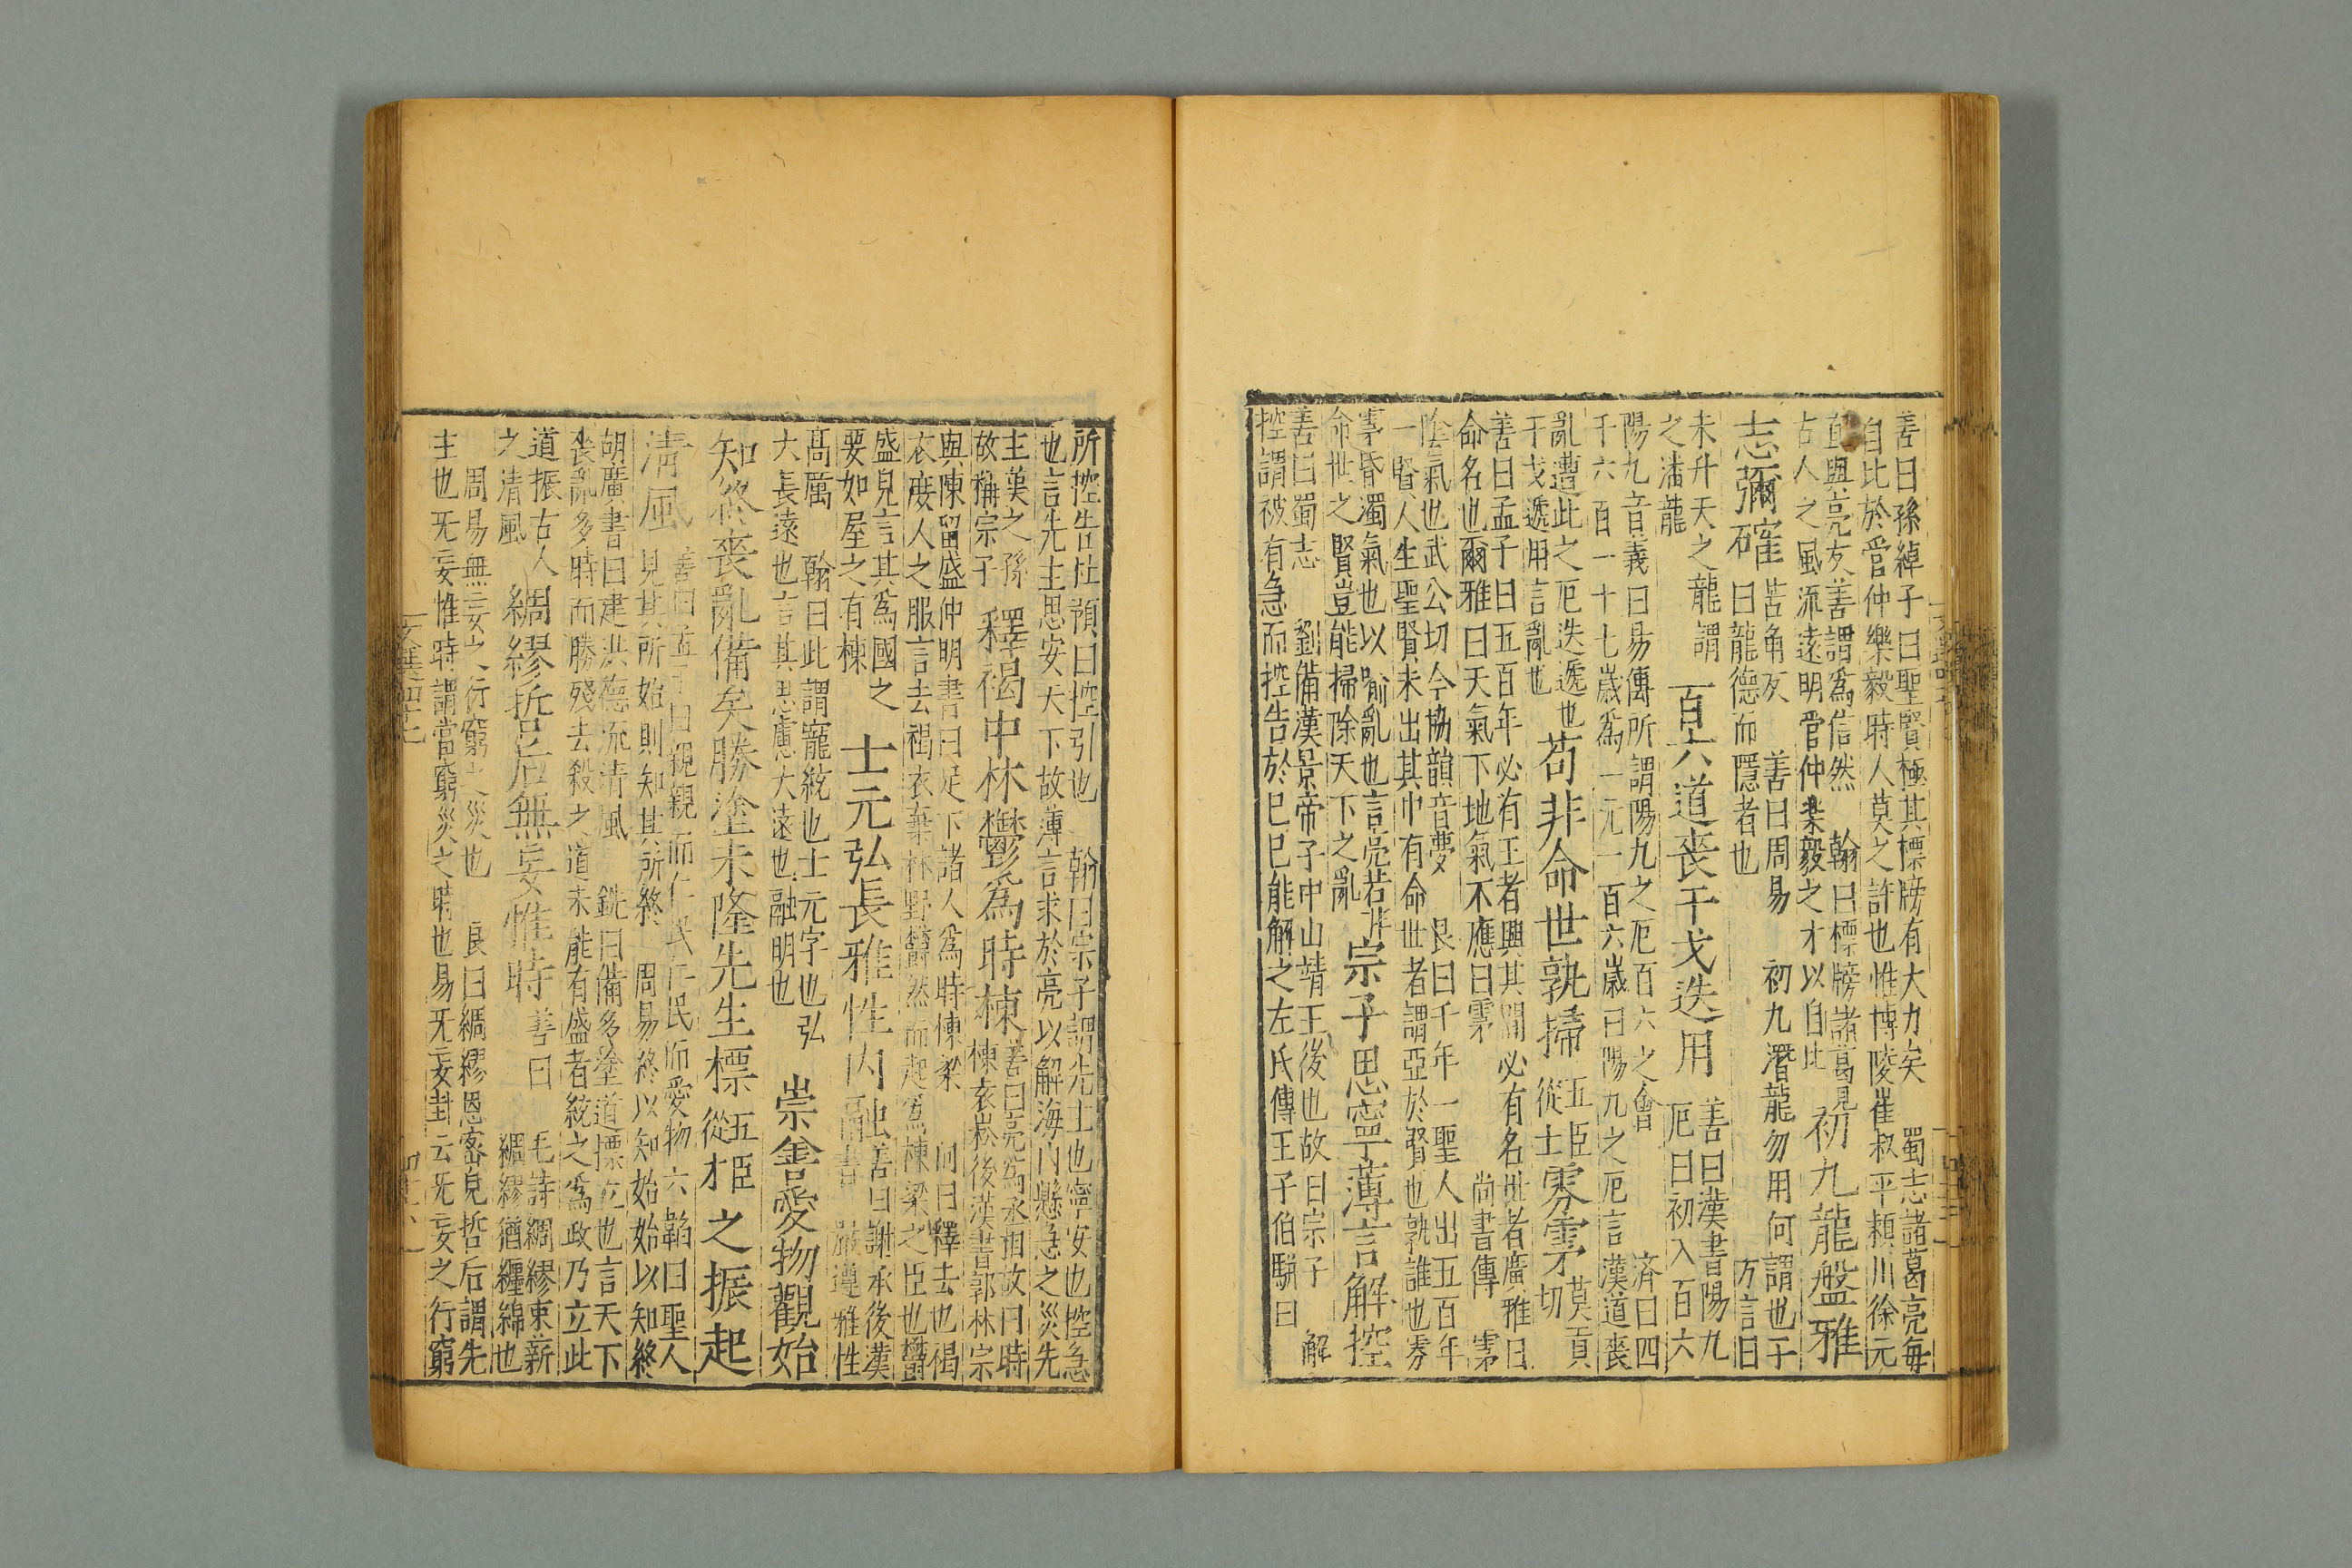 善曰孫綽子曰聖賢極其標牓有大力矣 蜀志諸葛亮每
自比於管仲樂毅時人莫之許也惟博陵崔叔平潁川徐元
直與亮友善謂爲信然 翰曰標牓諸葛見
古人之風流遠明管仲樂毅之才以自比
初九龍盤雅
志彌確
苦角友 善曰周易 初九潛龍勿用何謂也子
曰龍德而隱者也 方言曰
未升天之龍謂
之潘龍
百六道喪干戈迭用
善曰漢書陽九
厄曰初入百六
陽九音義曰易傳所謂陽九之厄百六之會 濟曰四
千六百一十七歲爲一元一百六歲曰陽九之厄言漢道喪
亂遭此之厄迭遞也
于戈遞用言亂也
苟非命世孰掃
五臣
從士
雰雺
莫貢
切
善曰孟子曰五百年必有王者興其間必有名世者廣雅曰
命名也爾雅曰天氣下地氣不應曰雺 尚書傳 雺
陰氣也武公切今協韻音夢 良曰千年一聖人出五百年
一賢人生聖賢未出其中有命世者謂亞於賢也孰誰也雰
雺昏濁氣也以喻亂也言亮若非
命世之賢豈能掃除天下之亂
宗子思寧薄言解控
善曰蜀志 劉備漢景帝子中山靖王後也故曰宗子 解
控謂被有急而控告於巳巳能解之左氏傳王子伯駢曰
所控告杜預曰控引也 翰曰宗子謂先主也寧安也控急
也言先主思安天下故薄言求於亮以解海內懸急之災先
主漢之孫
故稱宗子
釋褐中林鬱爲時棟
善曰亮爲丞相故曰時
棟袁崧後漢書郭林宗
與陳留盛仲明書曰足下諸人爲時棟梁 向曰釋去也褐
衣庶人之服言去褐衣棄林野鬱然而起爲棟梁之臣也鬱
盛皃言其爲國之
要如屋之有棟
士元弘長雅性內融
善曰謝承後漢
書 嚴遵雅性
高厲 翰曰此謂寵統也士元字也弘
大長遠也言其思慮大遠也融明也
崇善愛物觀始
知終喪亂備矣勝塗未隆先生標
五臣
從才
之振起
清風
善曰孟子曰親親而仁民仁民而愛物六韜曰聖人
見其所始則知其所終 周易終以知始始以知終
胡廣書曰建洪德流清風 銑曰備多塗道標立也言天下
喪亂多時而勝殘去殺之道未能有盛者統之爲政乃立此
道振古人
之清風
綢繆哲后無妄惟時
善曰 毛詩綢繆束薪
綢繆猶纏綿也
周易無妄之行窮之災也 良曰綢繆恩密皃哲后謂先
主也旡妄惟時謂當窮災之時也易旡妄卦云旡妄之行窮